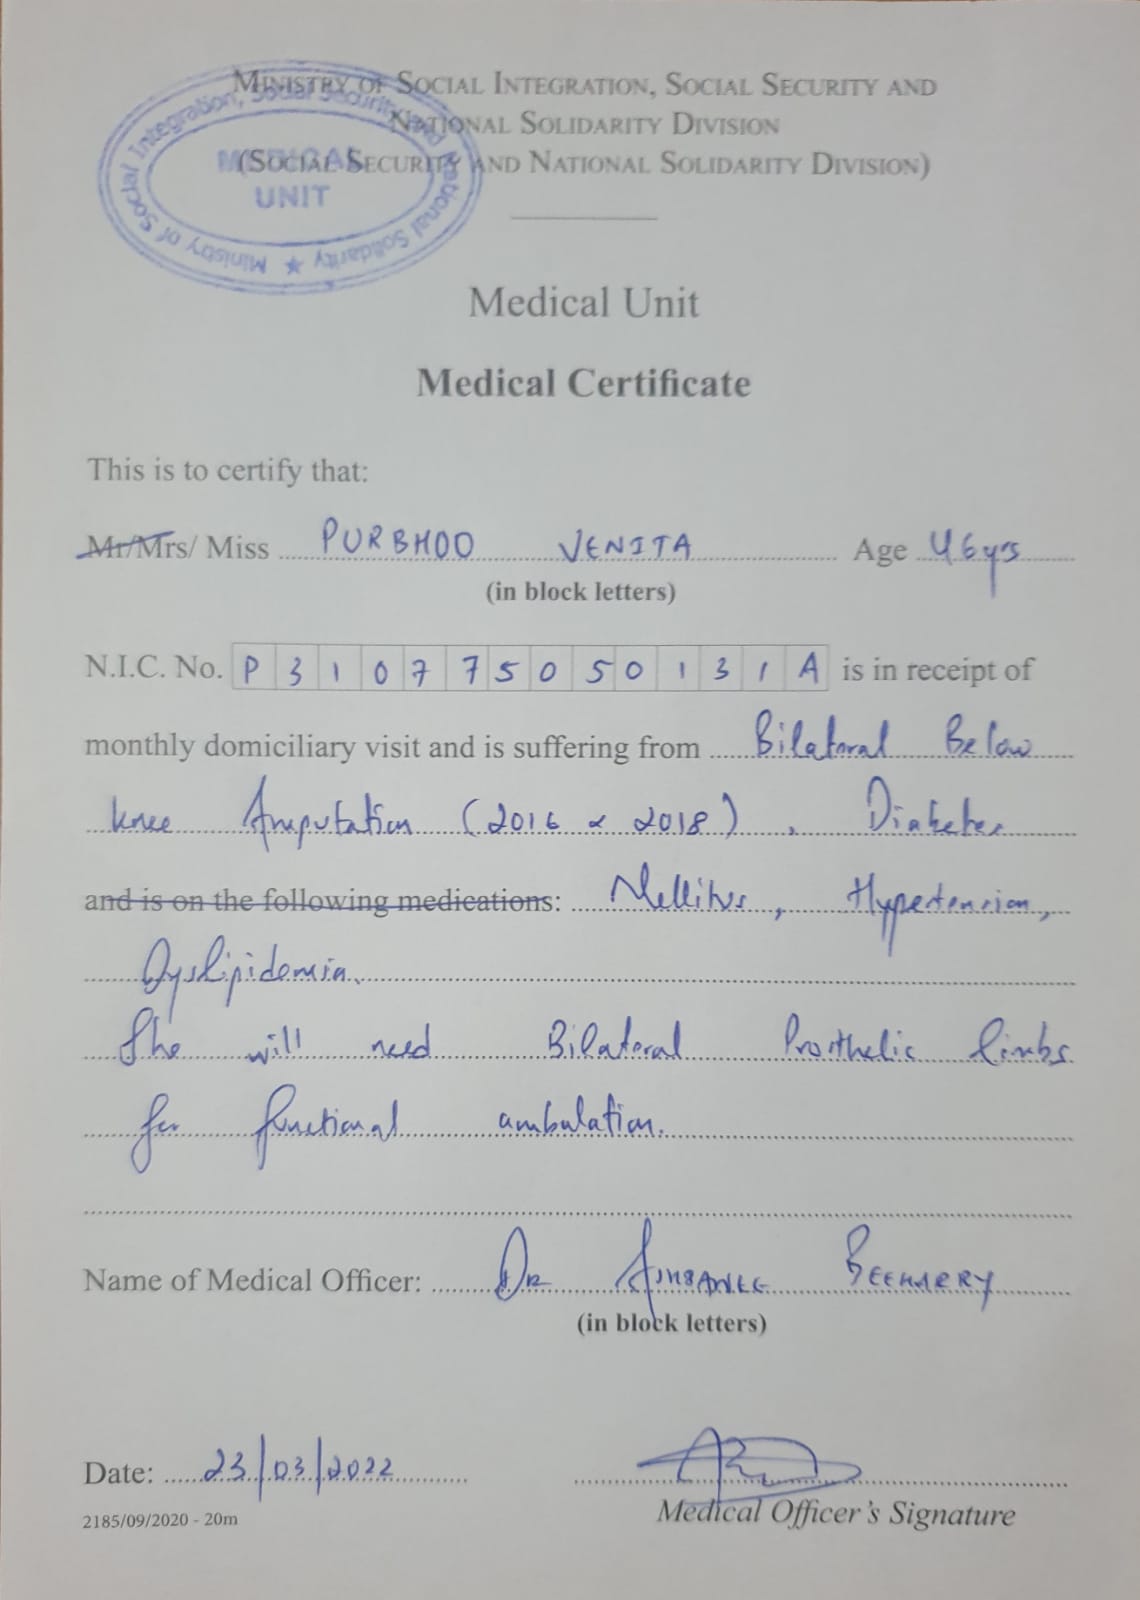 MINISTRY OF SOCIAL INTEGRATION, SOCIAL SECURITY AND
NATIONAL SOLIDARITY DIVISION
(SOCIAL SECURITY AND NATIONAL SOLIDARITY DIVISION)
Ministry of Social Integration, Social Security and National Solidarity ★
MEDICAL
UNIT
Medical Unit
Medical Certificate
This is to certify that:
Mr/Mrs/ Miss PURBHOO VENITA Age 46 yrs
(in block letters)
N.I.C. No. P 3 1 0 7 7 5 0 5 0 1 3 1 A is in receipt of
monthly domiciliary visit and is suffering from Bilateral Below
knee Amputation (2016 & 2018), Diabetes
and is on the following medications: Mellitus, Hypertension,
Dyslipidemia.
She will need Bilateral Prosthetic limbs
for functional ambulation.
Name of Medical Officer: DR BEEHARRY
(in block letters)
Date: 23/03/2022
Medical Officer's Signature
2185/09/2020 - 20m